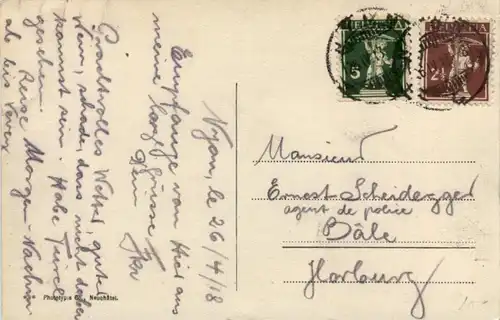 Nyon, le 26/4/18
Empfange von hier aus
meine herzl. Grüsse
Dein
Prachtvolles Wetter, gutes
schade, dass nicht dabei
kannst sein. Habe
gesehen.
Reise Morgen-Nachm
ab bis Vevey
HELVETIA
5
HELVETIA
2½
Monsieur
Ernest Scheidegger
agent de police
Bâle
Horburg
Phototypie Co., Neuchâtel.